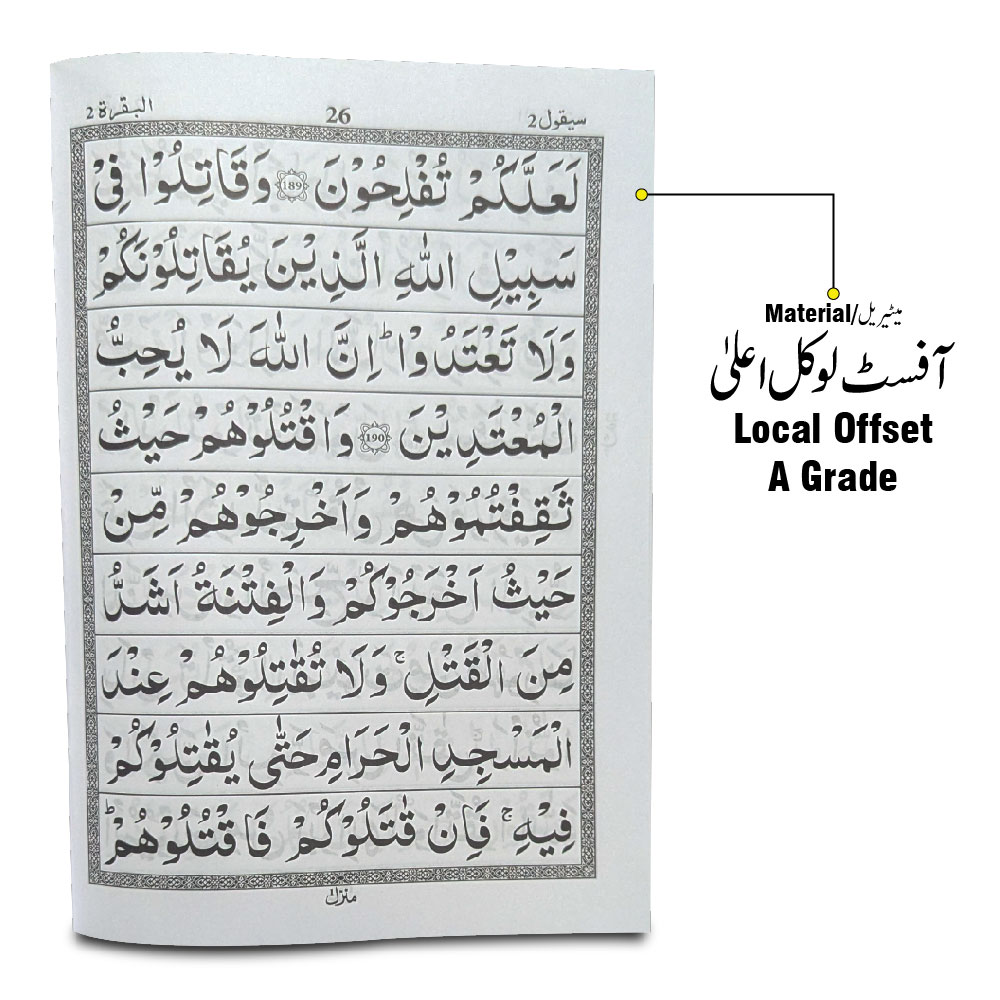 البقرة 2
26
سيقول 2
لَعَلَّكُمْ تُفْلِحُوْنَ 189 وَقَاتِلُوْا فِیْ
سَبِيْلِ اللّٰهِ الَّذِيْنَ يُقَاتِلُوْنَكُمْ
وَلَا تَعْتَدُوْاؕ اِنَّ اللّٰهَ لَا يُحِبُّ
الْمُعْتَدِيْنَ 190 وَاقْتُلُوْهُمْ حَيْثُ
ثَقِفْتُمُوْهُمْ وَاَخْرِجُوْهُمْ مِّنْ
حَيْثُ اَخْرَجُوْكُمْ وَالْفِتْنَةُ اَشَدُّ
مِنَ الْقَتْلِۚ وَلَا تُقٰتِلُوْهُمْ عِنْدَ
الْمَسْجِدِ الْحَرَامِ حَتّٰی يُقٰتِلُوْكُمْ
فِيْهِۚ فَاِنْ قٰتَلُوْكُمْ فَاقْتُلُوْهُمْؕ
منزل ۱
Material/میٹیریل
آفسٹ لوکل اعلیٰ
Local Offset
A Grade